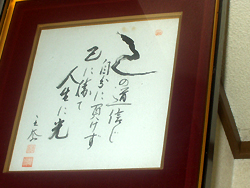 の道信じ
自分に負けず
己に勝て
人生に光